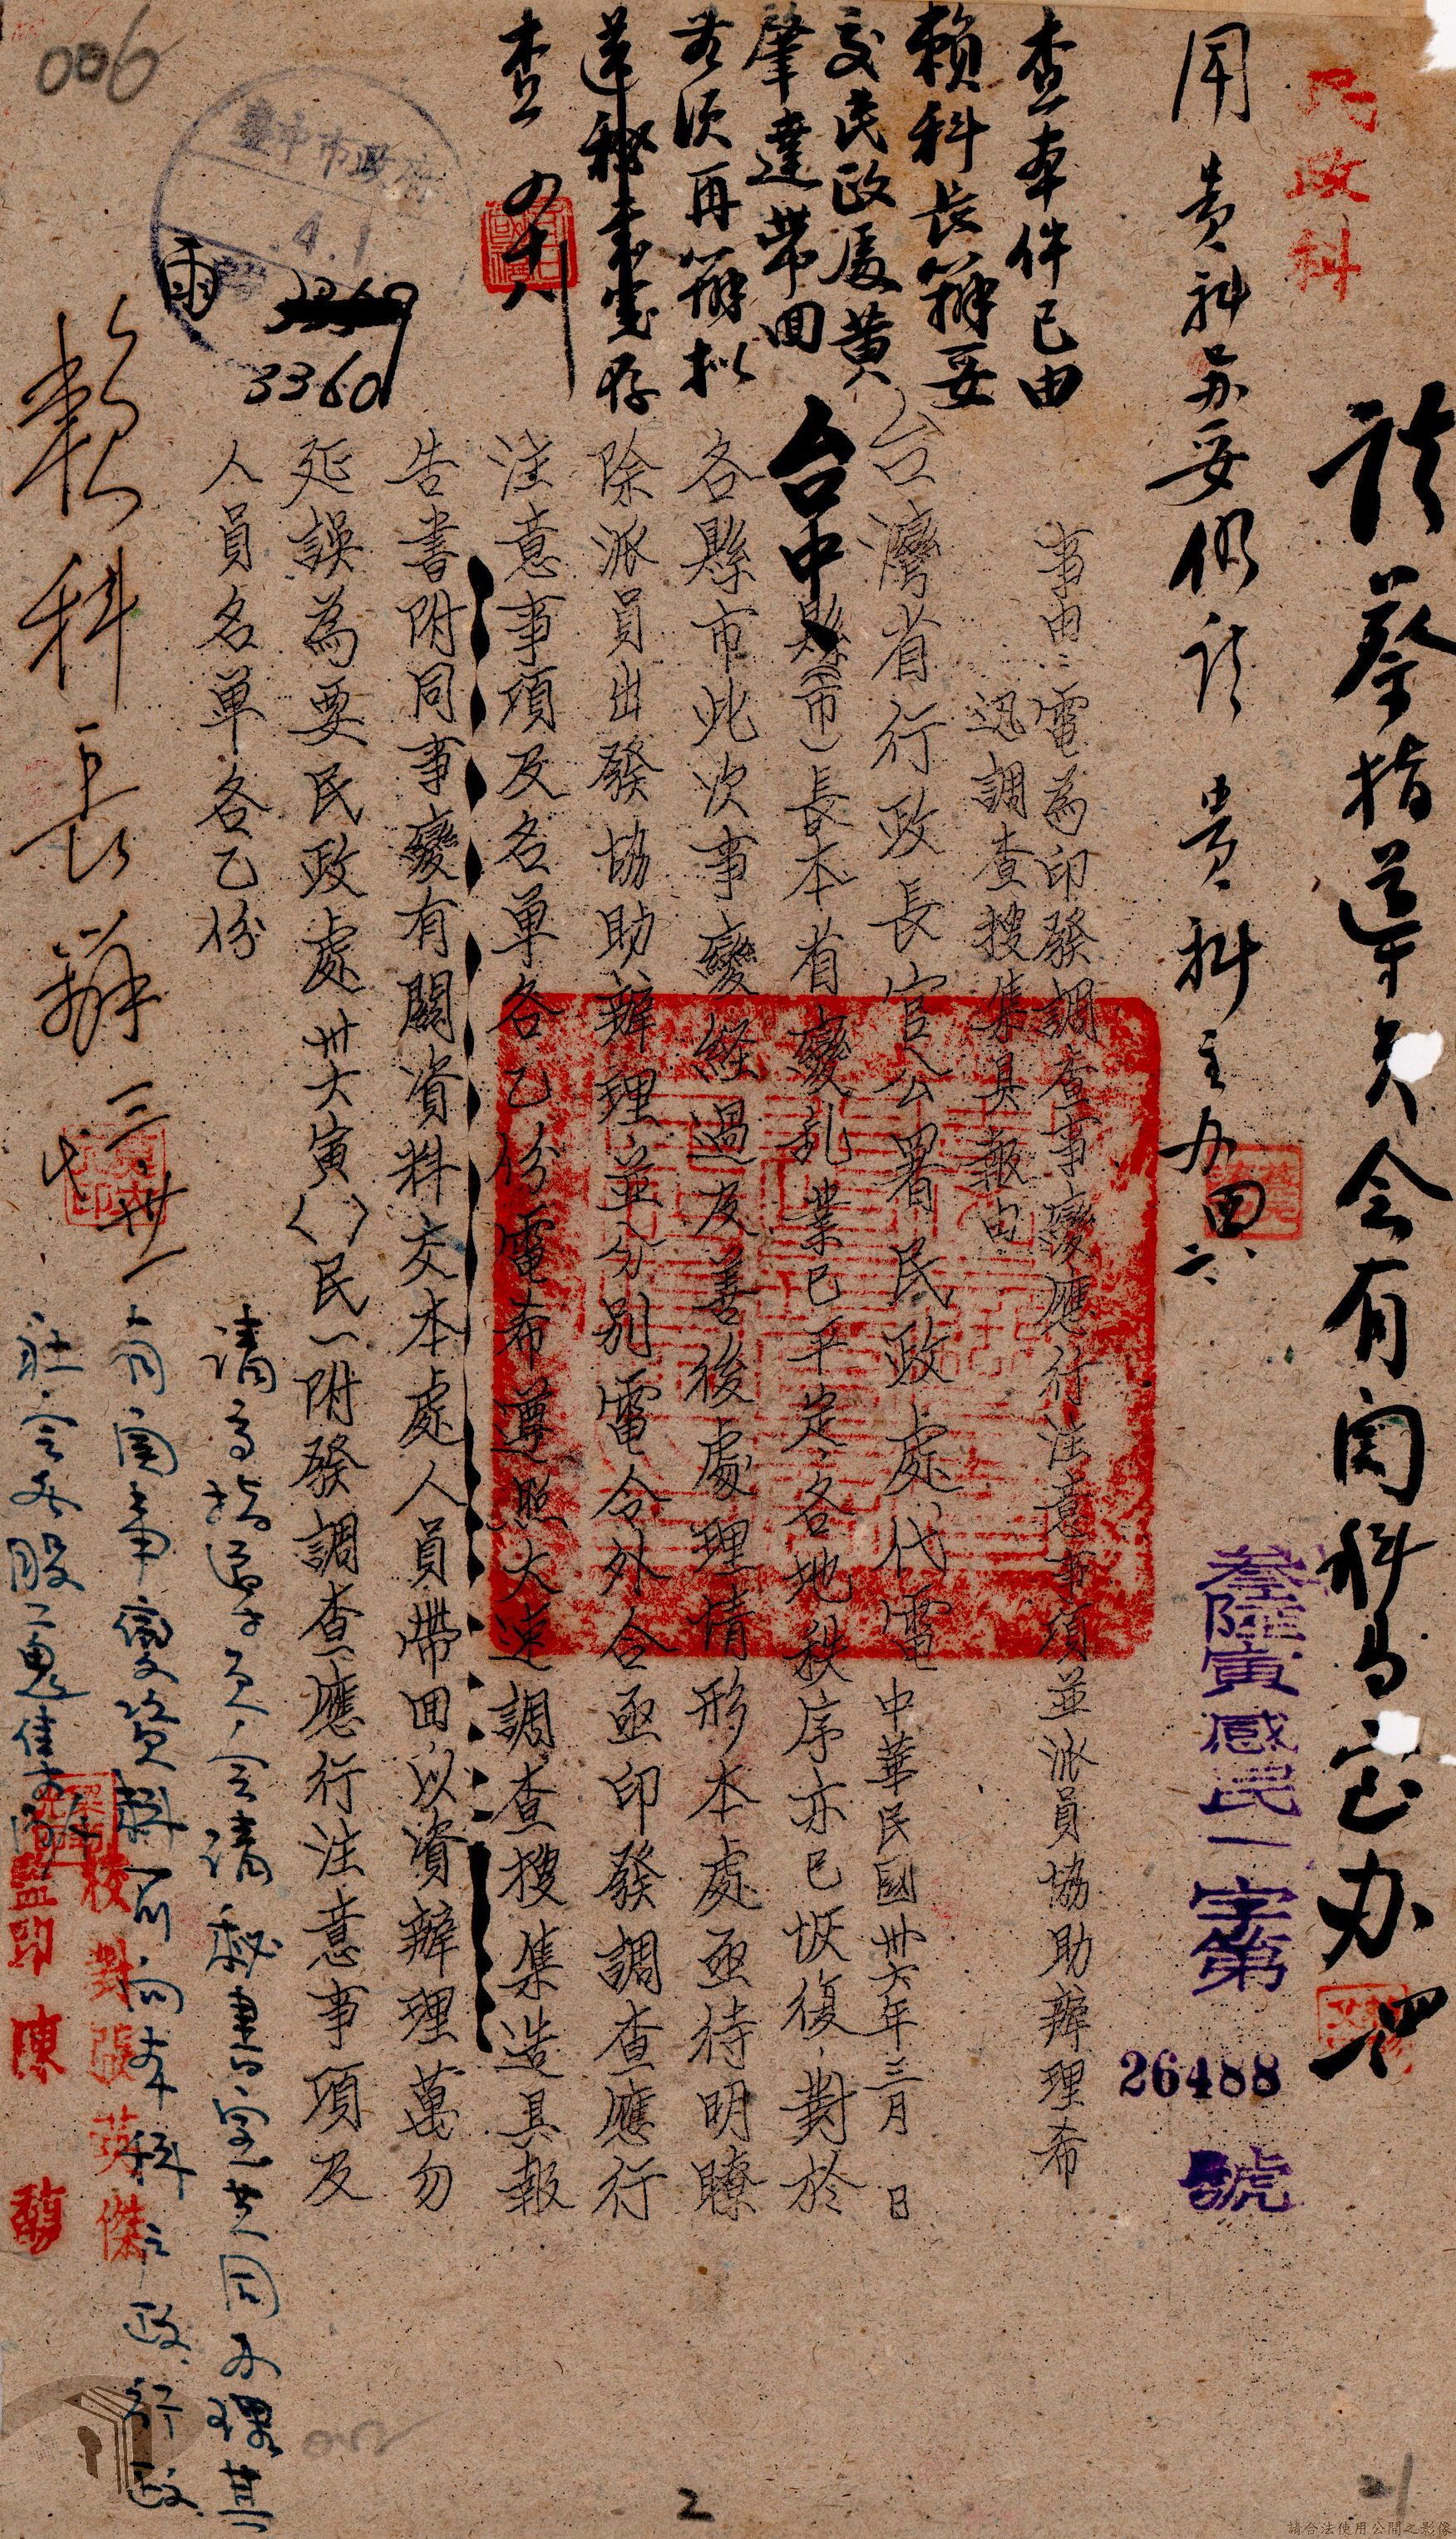 006
民政科
於蔡指導員會有関科局室办理
周
貴科办妥仍請 貴科主办 四、六、
叁陸寅感民一字第26488號
查本件已由
賴科長辦妥
交民政處黃
肇達帶回
首須再辦拟
送秘書室存
查 四、十八
臺中市政府
4.1
3360
事由：電為印發調查事變應行注意事項並派員協助辦理希
迅調查搜集具報由
台灣省行政長官公署民政處代電 中華民國卅六年三月 日
台中縣(市)長本省變乱業已平定、各地秩序亦已恢復、對於
各縣市此次事變經過及善後處理情形本處亟待明瞭
除派員出發協助辦理並分别電令外合亟印發調查應行
注意事項及名單各乙份電希遵照大速調查搜集造具報
告書附同事變有關資料交本處人員帶回以資辦理萬勿
延誤為要民政處卅六寅〈〉民一附發調查應行注意事項及
人員名單各乙份
賴科長辦 三、卅一
請蔡指導員、會請秘書室共同办理其
有関事變資料前向本科主政、行政、
社會各股蒐集
校對張英傑
監印陳馥
2
21
請合法使用公開之影像